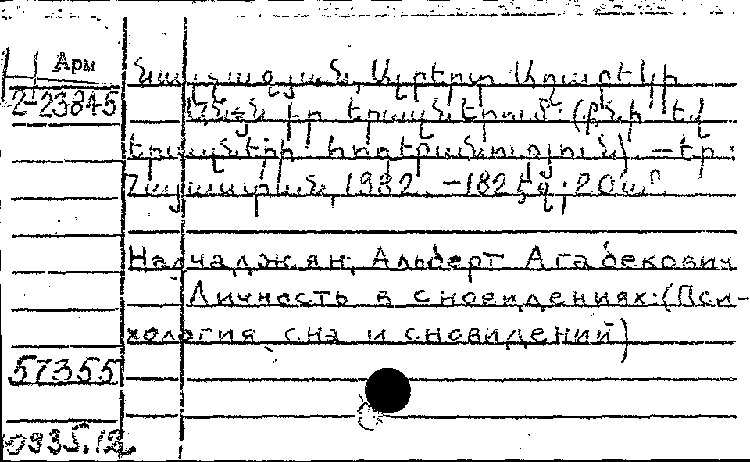 Арм
2-23845
Նալչաջյան, Ալբերտ Աղաբեկի
Անձն իր երազներում: (Քնի եվ
երազների հոգեբանություն) — Եր.:
Հայաստան, 1982. — 182 էջ; 20 սմ.
Налчаджян, Альберт Агабекович
Личность в сновидениях: (Пси-
хология сна и сновидений)
57355
0935.12